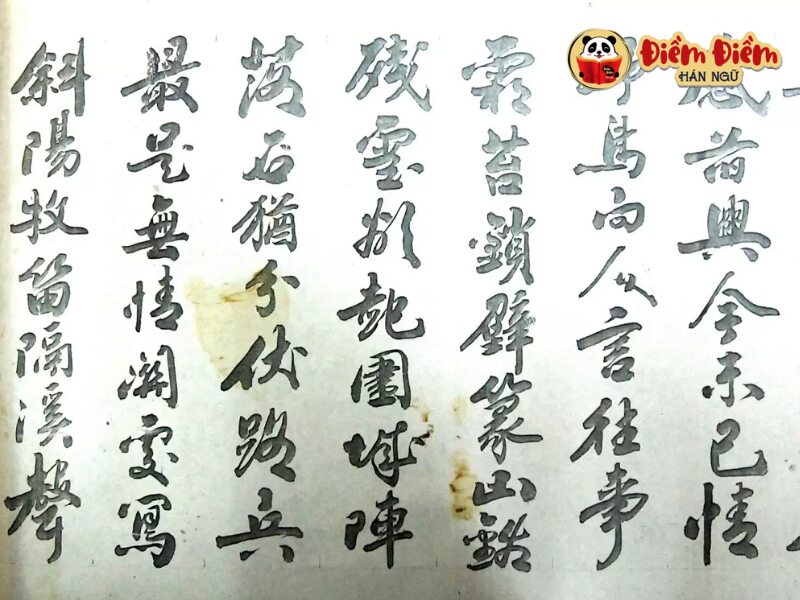 Điềm Điềm
HÁN NGỮ
感昔興今未已情
野鳥向人言往事
霜苔鎖壁篆山銘
殘雲欲起圍城陣
落石猶分伏路兵
最是無情閑處寫
斜陽牧笛隔溪聲